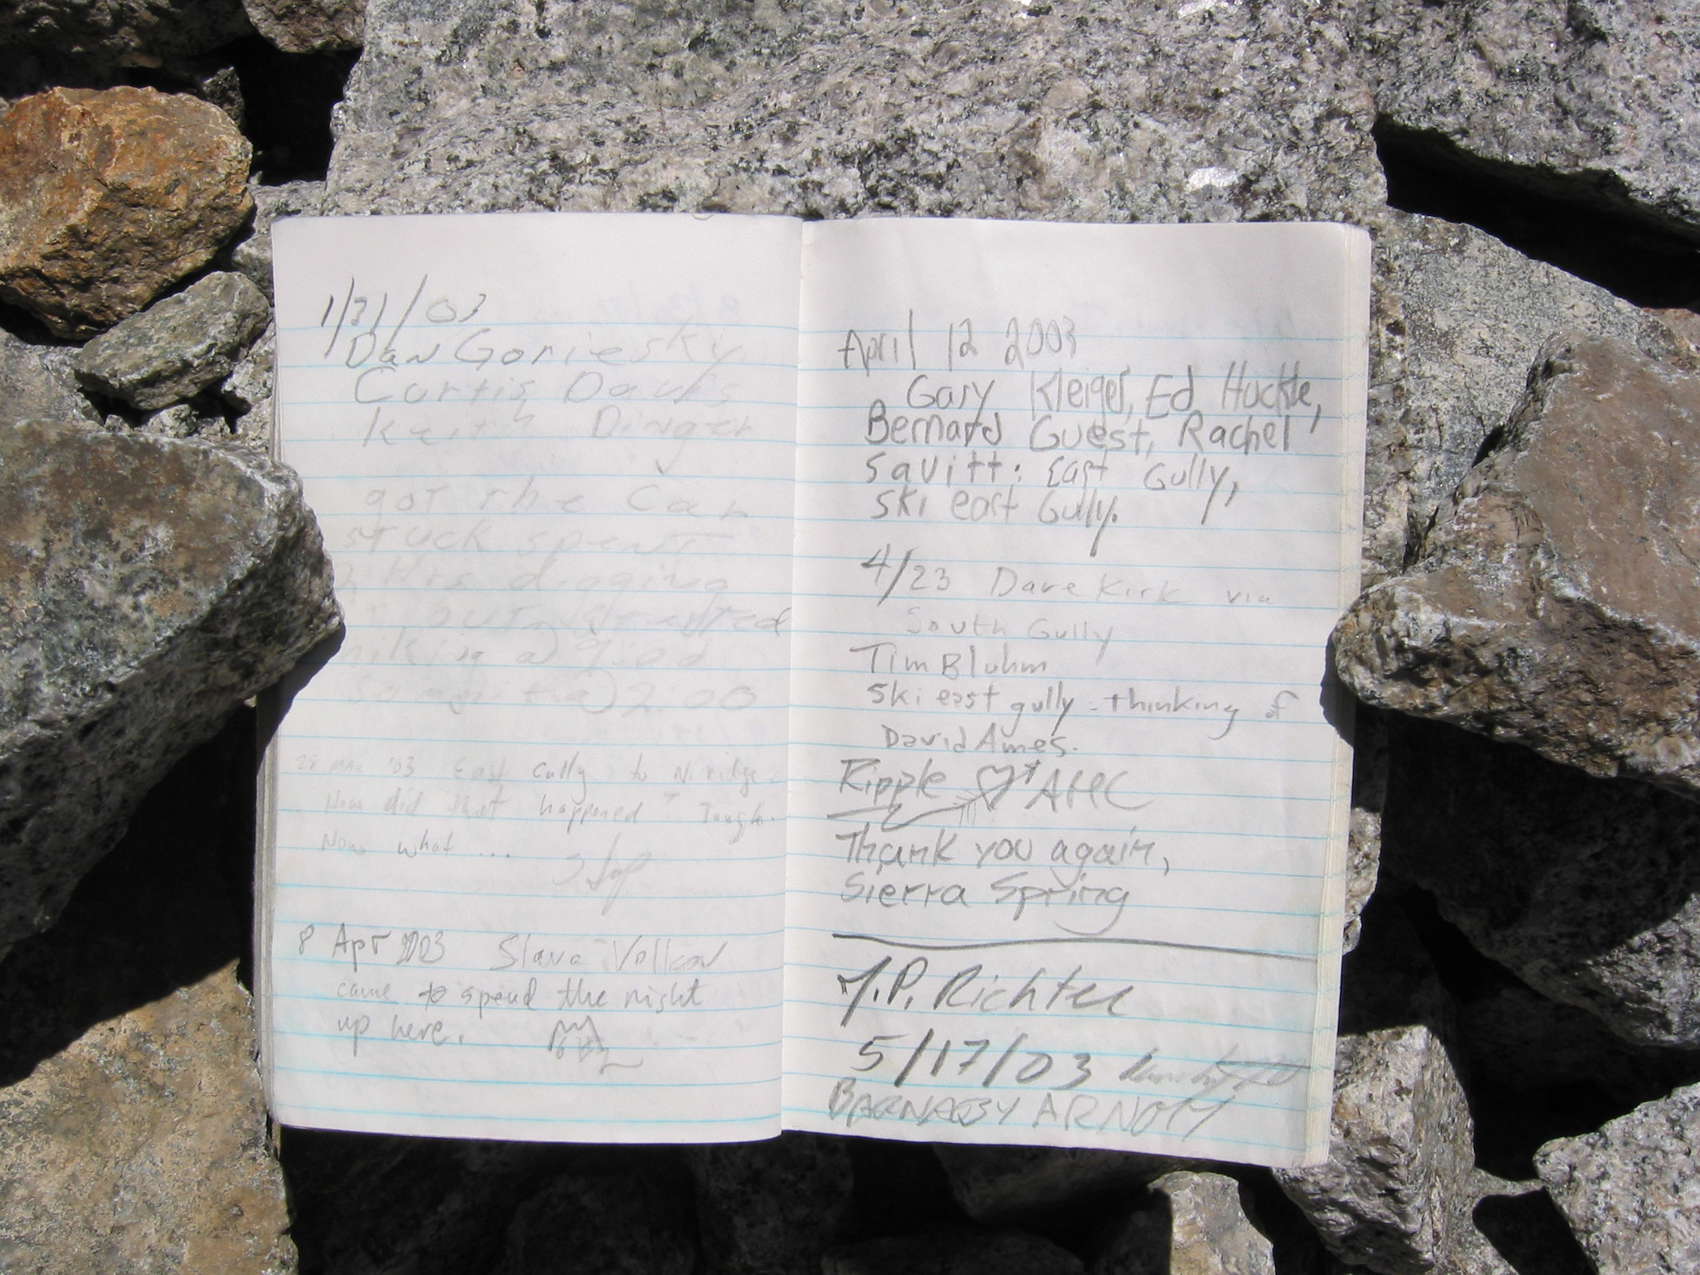 1/31/03
Dan Goriesky
Curtis Davis
Keith Dinger
got the Car
stuck spent
Hrs digging
out started
hiking @ 9:00
@ 2:00
28 Mar '03 East Gully to N. ridge.
Now did that happened
Now what ...
8 Apr 2003 Slava Volkov
came to spend the night
up here.
April 12 2003
Gary Kleiger, Ed Huckle,
Bernard Guest, Rachel
Savitt: East Gully,
Ski east Gully.
4/23 Dave Kirk via
South Gully
Tim Bluhm
Ski east gully - thinking of
David Ames.
Ripple
Thank you again,
Sierra Spring
J.P. Richter
5/17/03
BARNABY ARNOTT